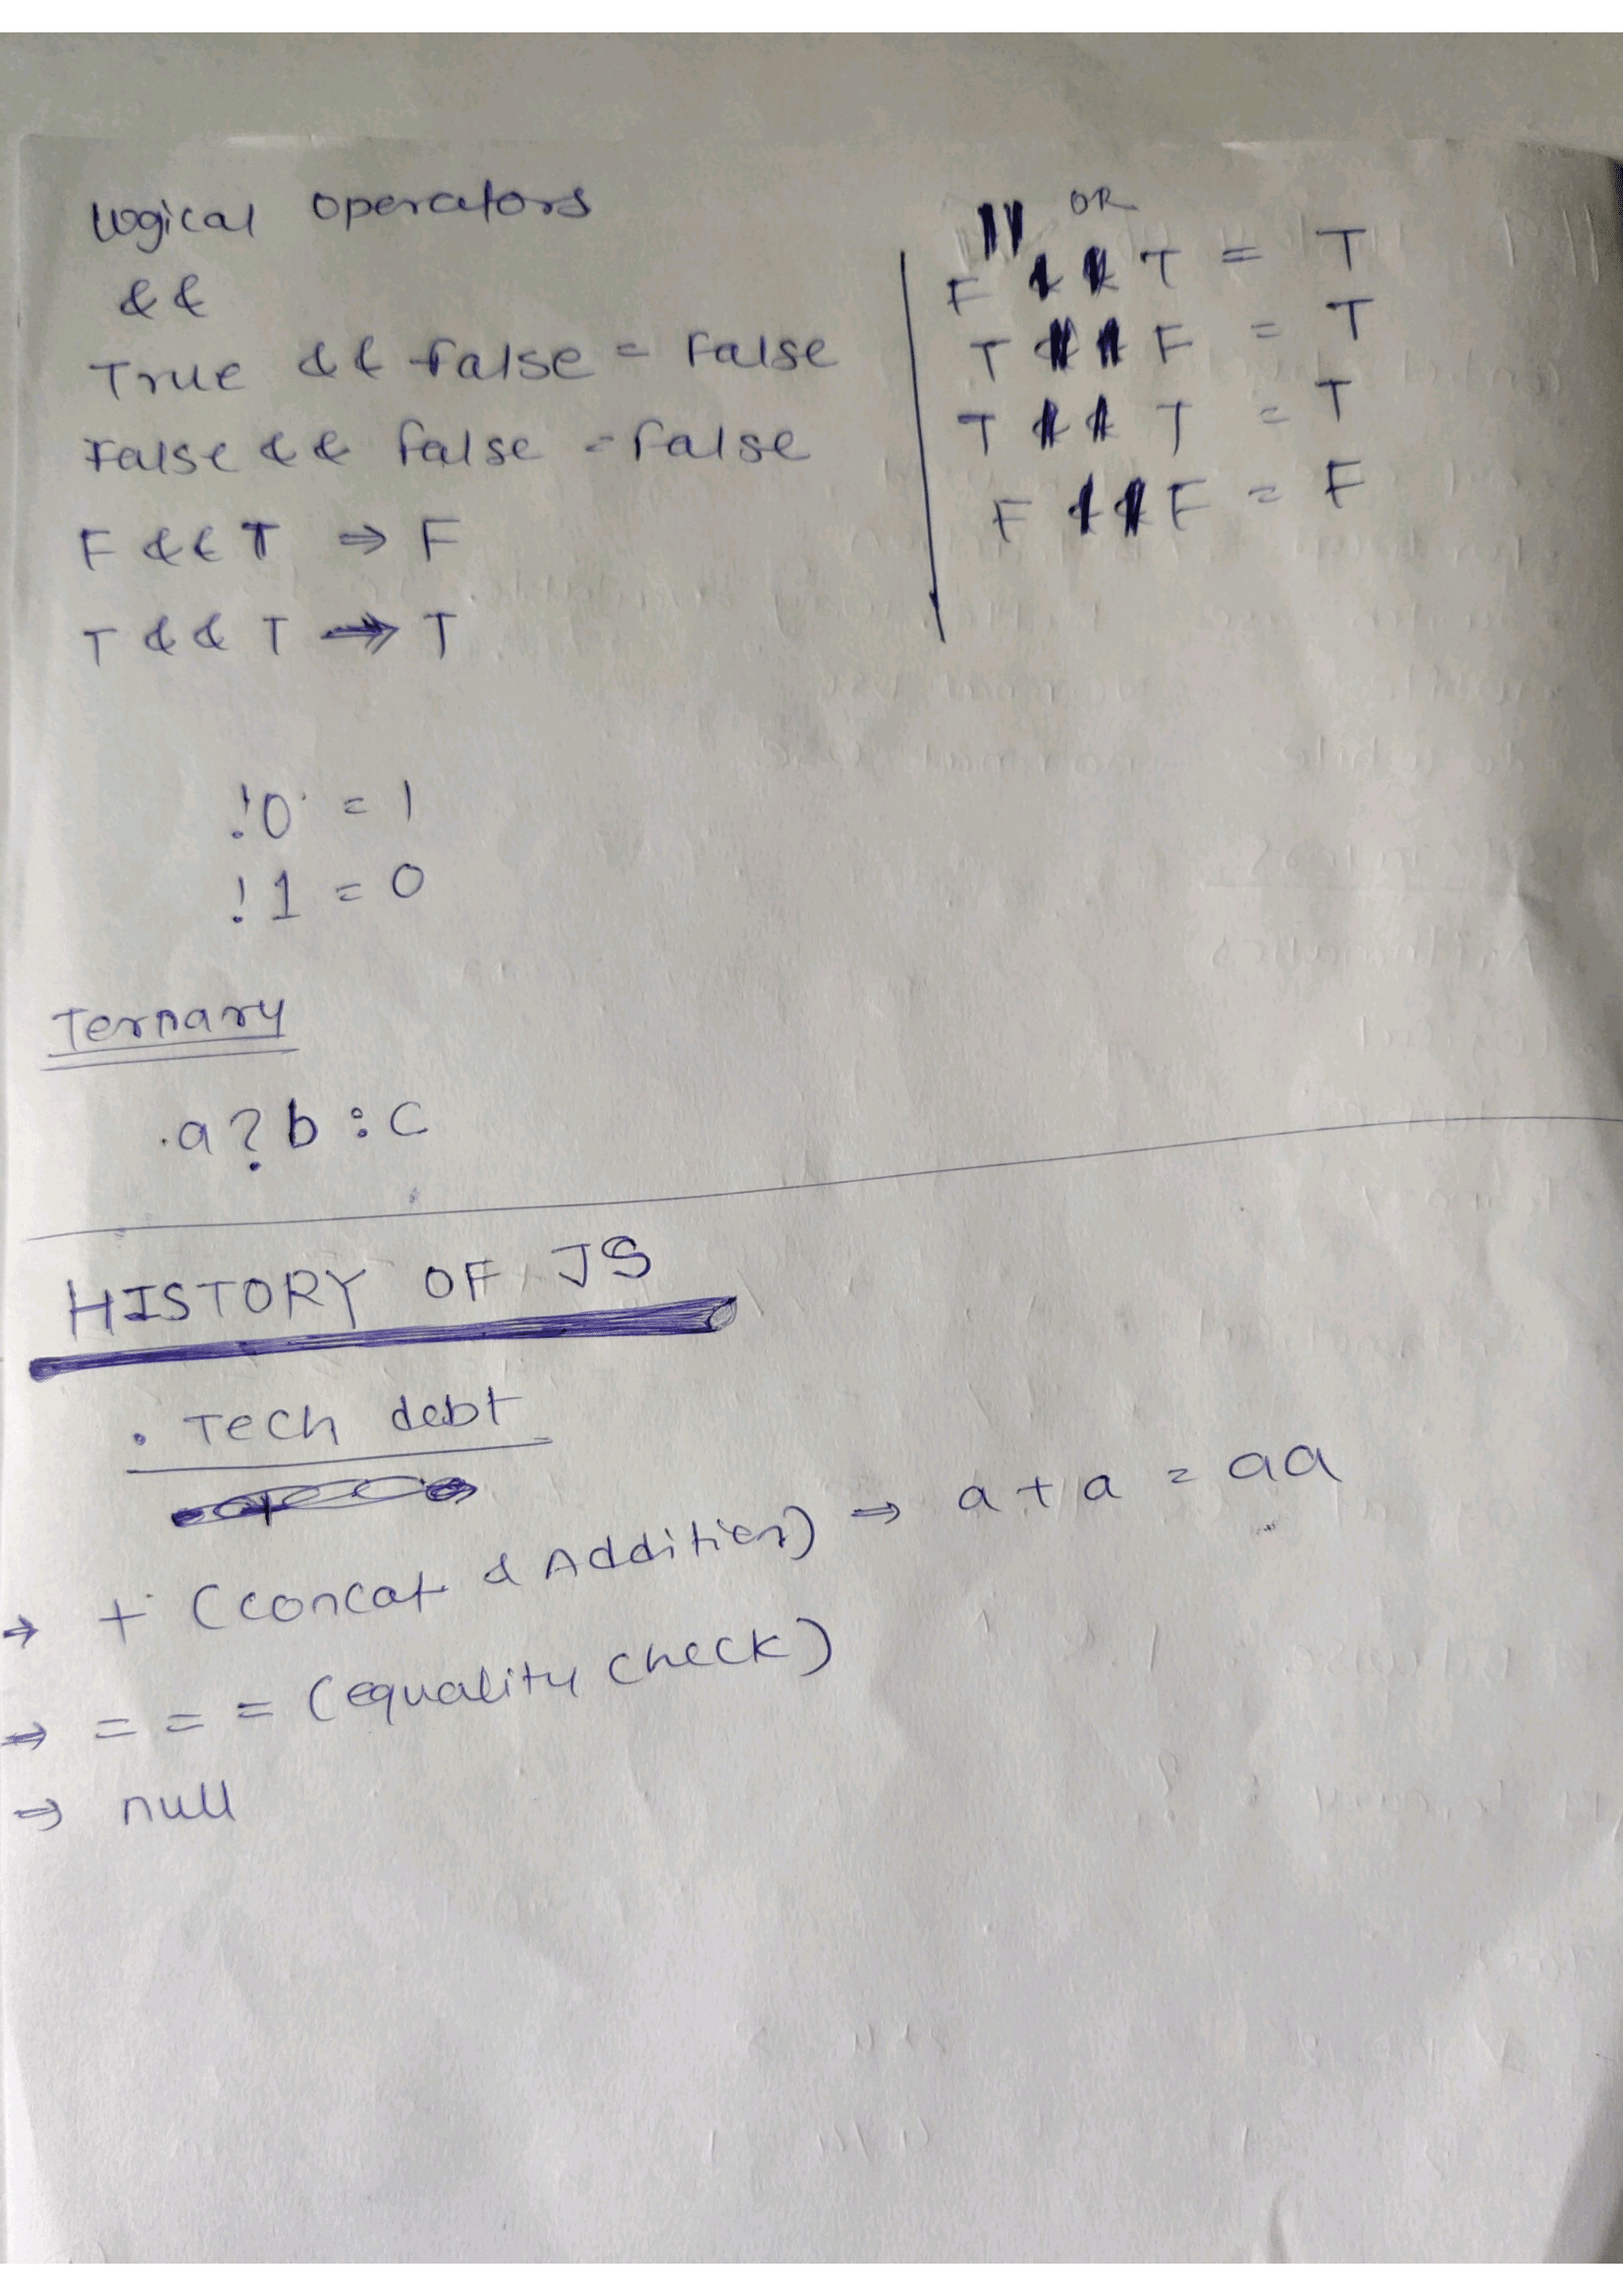 Logical operators
&&
True && false = False
False && false = false
F && T ⇒ F
T && T ⇒ T
|| OR
F || T = T
T || F = T
T || T = T
F || F = F
!0 = 1
!1 = 0
Ternary
a ? b : c
HISTORY OF JS
. Tech debt
→ + (concat & Addition) ⇒ a + a = aa
⇒ = = = (equality check)
⇒ null